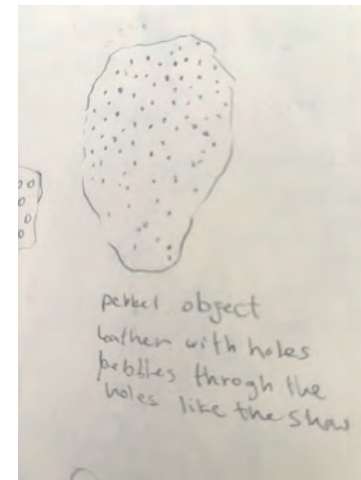 pebbel object
leather with holes
pebbles throgh the
holes like the show